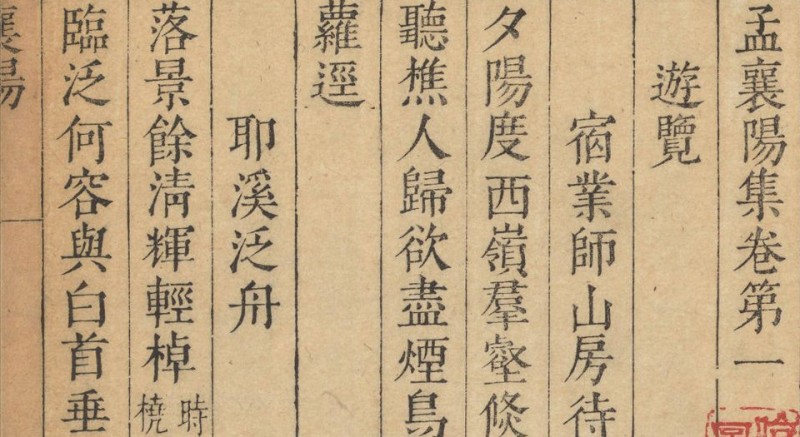 孟襄陽集卷第一
遊覽
宿業師山房待
夕陽度西嶺羣壑倐
聽樵人歸欲盡煙鳥
蘿逕
耶溪泛舟
落景餘清輝輕棹時橈
臨泛何容與白首垂
襄陽